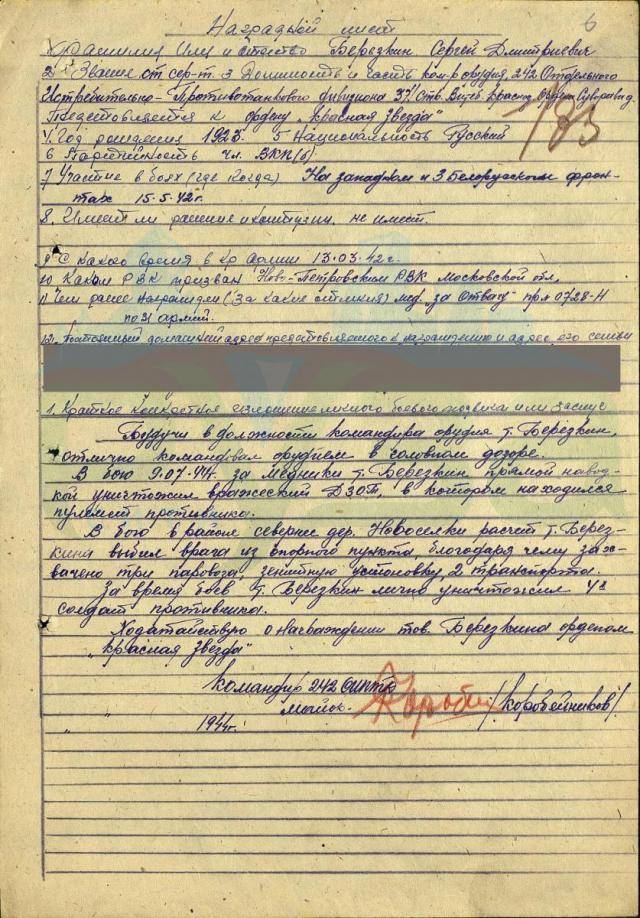 6
Наградной лист
Фамилия Имя и Отчество Березкин Сергей Дмитриевич
2 Звание ст. сер-т. 3 Должность и часть ком-р орудия, 242 Отдельного
Истребительно-Противотанкового дивизиона
Представляется к ордену „Красная Звезда"
4. Год рождения 1923. 5 Национальность Русский
6 Партийность чл. ВКП(б)
7 Участие в боях (где когда) На западном и 3 Белорусском фрон-
тах 15.5.42г.
8. Имеет ли ранение и контузии. не имеет.
9 С какого время в Кр Армии 13.03.42г.
10 Каким РВК призван Ново-Петровским РВК Московской обл.
11 Чем ранее награжден (За какие отличия) мед. „За Отвагу" пр. № 0728-Н
по 31 армий.
12. Постоянный домашний адрес представляемого к награждению и адрес его семьи
1. Краткое конкретное изложение личного боевого подвига или заслуг
Будучи в должности командира орудия т. Березкин,
отлично командовал орудием в головном дозоре.
В бою 9.07.44г. за Медники т. Березкин прямой навод-
кой уничтожил вражеский ДЗОТ, в котором находился
пулемет противника.
В бою в район севернее дер. Новоселки расчет т. Берез-
кина выбил врага из опорного пункта, благодаря чему зах-
вачено три паровоза, зенитную установку, 2 транспорта.
За время боев т. Березкин лично уничтожил 41
солдат противника.
Ходатайствую о награждении тов. Березкина орденом
„Красная звезда"
Командир 242 ОИПТД
майор. /Коробейников/
" " 1944г.